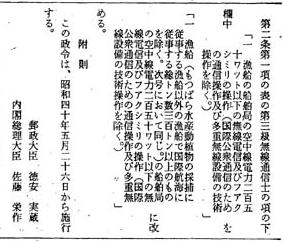 第二条第一項の表の第三級無線通信士の項の下
欄中
「一 漁船の船舶局の空中線電力二百五
十ワット以下の無線電信及びフアク
シミリの操作（国際公衆通信のため
の通信操作及び多重無線設備の技術
操作を除く。）
を
「一 漁船（もつぱら水産動植物の採捕に
従事する漁船以外の漁船で国際航海に
従事する総トン数三百トン以上のもの
を除く。次号において同じ。）の船舶局
の空中線電力二百五十ワット以下の無
線電信及びフアクシミリの操作（国際
公衆通信のための通信操作及び多重無
線設備の技術操作を除く。）
に改
める。
附 則
この政令は、昭和四十年五月二十六日から施行
する。
郵政大臣 徳安 実蔵
内閣総理大臣 佐藤 栄作